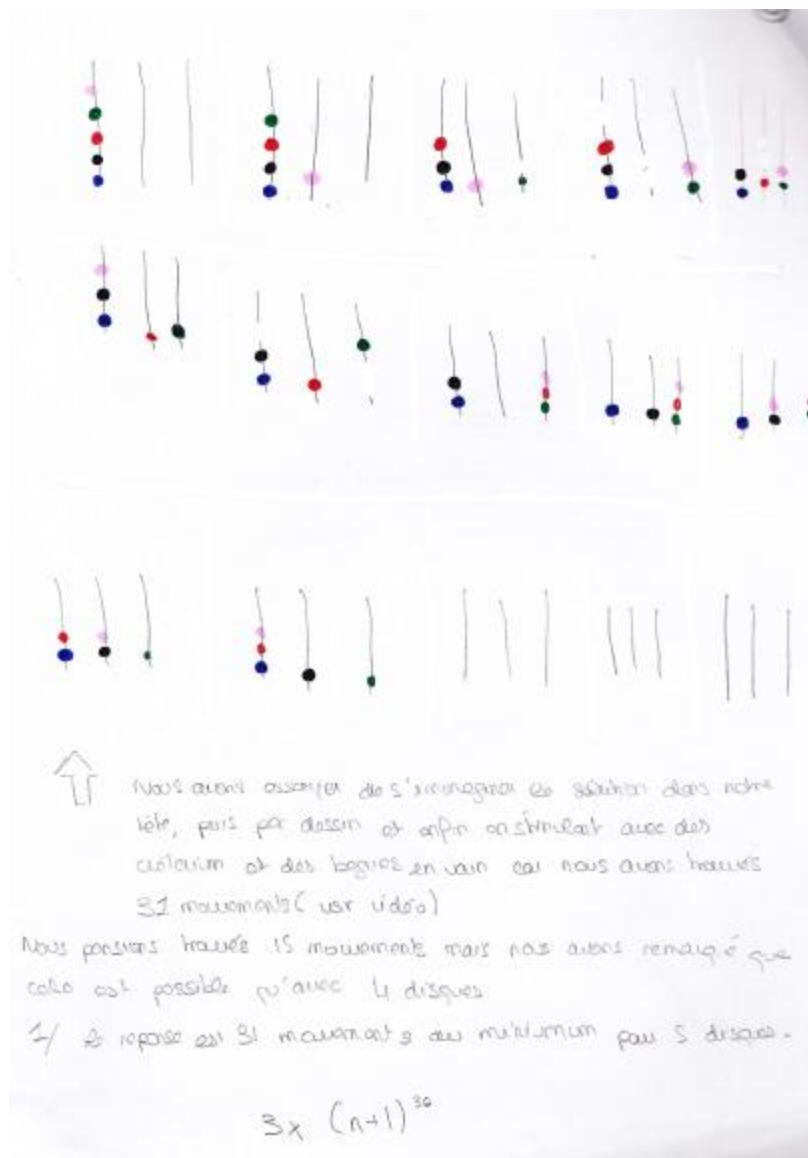 Nous avons essayer de s'immaginer la solution dans notre
tête, puis par dessin et enfin en stimulant avec des
et des bagues en vain car nous avons trouvés
31 mouvements ( vidéo)
Nous pensions trouvés 15 mouvements mais nous avons remarqué que
cela est possible qu'avec 4 disques
1/ la reponse est 31 mouvements au minimum pour 5 disques.
3x (n+1)³⁰